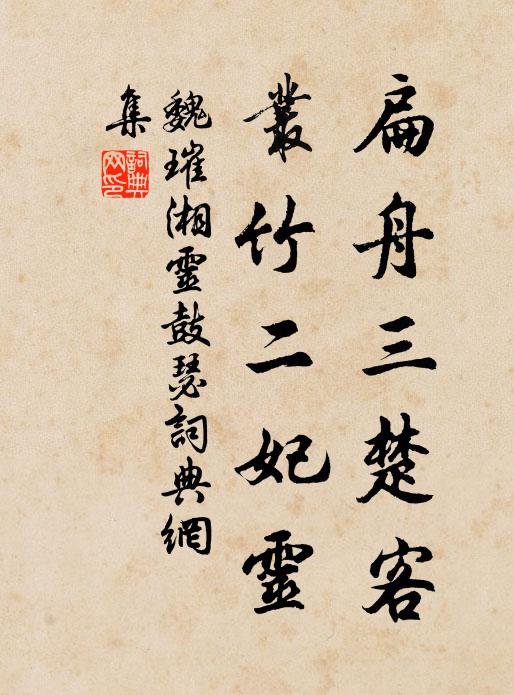 扁舟三楚客
叢竹二妃靈
魏璀湘靈鼓瑟詞典網
集
詞典
网印